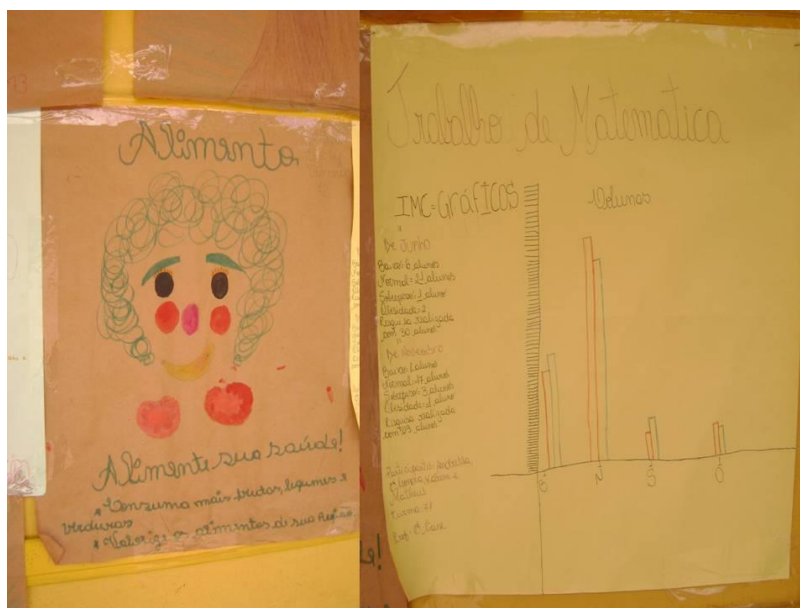 Alimento
Alimente sua saúde!
* Consuma mais frutas, legumes e
verduras
* Valorize os alimentos di sua
Trabalho de Matematica
IMC=GráfICOS
Colunas
De Junho
Baixo: 6 alunos
Normal = 21 alunos
Sobrepeso: 1 aluno
Obesidade: 2
Pesquisa realizada
com 30 alunos
De Novembro
Baixo:
Normal: 17 alunos
Sobrepeso: 3 alunos
Obesidade:
Pesquisa realizada
com 29 alunos
B N S O
Participants:
Matheus
Turma 71
Prof: